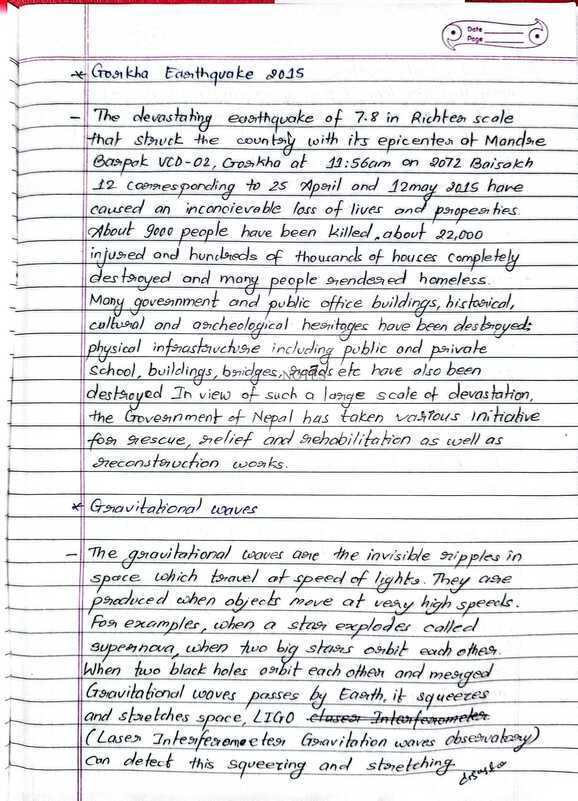 Date
Page
* Gorkha Earthquake 2015
- The devastating earthquake of 7.8 in Richter scale
that struck the country with its epicenter at Mandre
Barpak VCD-02, Gorkha at 11:56am on 2072 Baisakh
12 corresponding to 25 April and 12may 2015 have
caused an inconcievable loss of lives and properties.
About 9000 people have been killed, about 22,000
injured and hundreds of thousands of houces completely
destroyed and many people rendered homeless.
Many government and public office buildings, historical,
cultural and archeological heritages have been destroyed;
physical infrastructure including public and private
school, buildings, bridges, roads etc have also been
destroyed In view of such a large scale of devastation,
the Government of Nepal has taken various initiative
for rescue, relief and rehabilitation as well as
reconstruction works.
* Gravitational waves
- The gravitational waves are the invisible ripples in
space which travel at speed of lights. They are
produced when objects move at very high speeds.
For examples, when a star explodes called
supernova, when two big stars orbit each other.
When two black holes orbit each other and merged
Gravitational waves passes by Earth, it squeezes
and stretches space, LIGO Interferometer
(Laser Interferometer Gravitation waves observatory)
can detect this squeering and stretching.